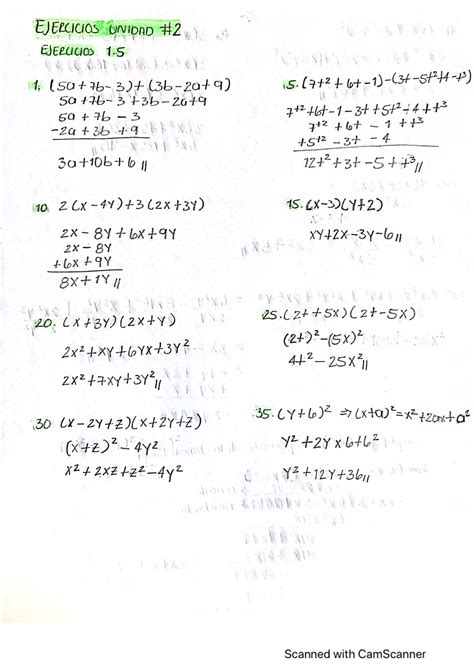 EJERCICIOS UNIDAD #2
EJERCICIOS 1.5
1. (5a + 7b - 3) + (3b - 2a + 9)
5a + 7b - 3 + 3b - 2a + 9
5a + 7b - 3
-2a + 3b + 9
3a + 10b + 6 //
5. (7t² + 6t - 1) - (3t - 5t² + 4 - t³)
7t² + 6t - 1 - 3t + 5t² - 4 + t³
7t² + 6t - 1 + t³
+5t² - 3t - 4
12t² + 3t - 5 + t³ //
10. 2(x - 4y) + 3(2x + 3y)
2x - 8y + 6x + 9y
2x - 8y
+6x + 9y
8x + 1y //
15. (x - 3)(y + 2)
xy + 2x - 3y - 6 //
20. (x + 3y)(2x + y)
2x² + xy + 6yx + 3y²
2x² + 7xy + 3y² //
25. (2t + 5x)(2t - 5x)
(2t)² - (5x)²
4t² - 25x² //
30 (x - 2y + z)(x + 2y + z)
(x + z)² - 4y²
x² + 2xz + z² - 4y²
35. (y + 6)² ⇒ (x + a)² = x² + 2ax + a²
y² + 2y x 6 + 6²
y² + 12y + 36 //
Scanned with CamScanner